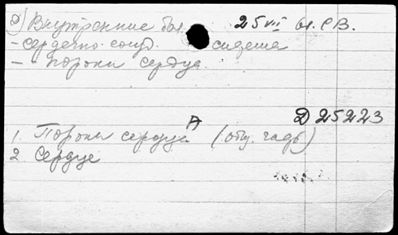 2) Внутренние бол. 25 VII
- сердечно-сосуд. система
- пороки сердца
Д 25223
1. Пороки сердца (общ. часть)
2 Сердце